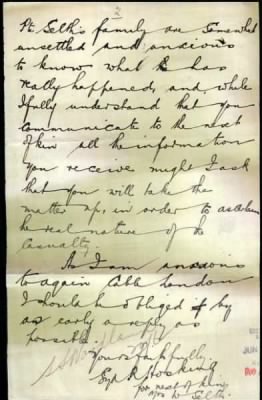 2
Pt. Selk's family are somewhat
unsettled and anxious
to know what has
really happened, and, while
I fully understand that you
communicate to the next
of kin all the information
you receive might I ask
that you will take the
matter up, in order to
the real nature of the
casualty.
As I am anxious
to again cable London
I should be obliged by
as early a reply as
possible.
Yours faithfully
for next of kin,
Mrs W Selk.